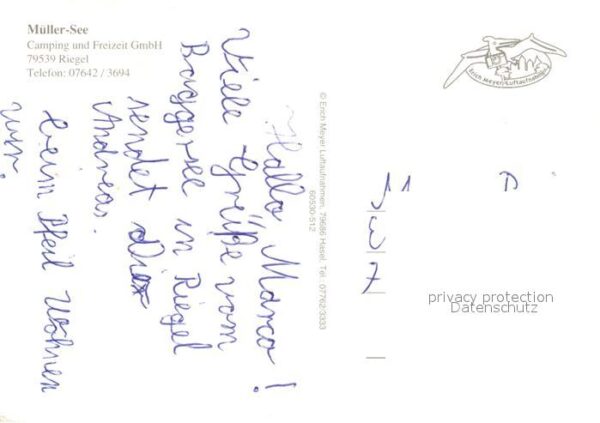 Müller-See
Camping und Freizeit GmbH
79539 Riegel
Telefon: 07642 / 3694
Hallo, Marco!
Viele Grüße vom
Baggersee in Riegel
sendet dir
Andreas.
beim Pfeil wohnen
wir.
© Erich Meyer Luftaufnahmen, 79686 Hasel, Tel.: 07762/3333
60530-512
Erich Meyer Luftaufnahmen
privacy protection
Datenschutz